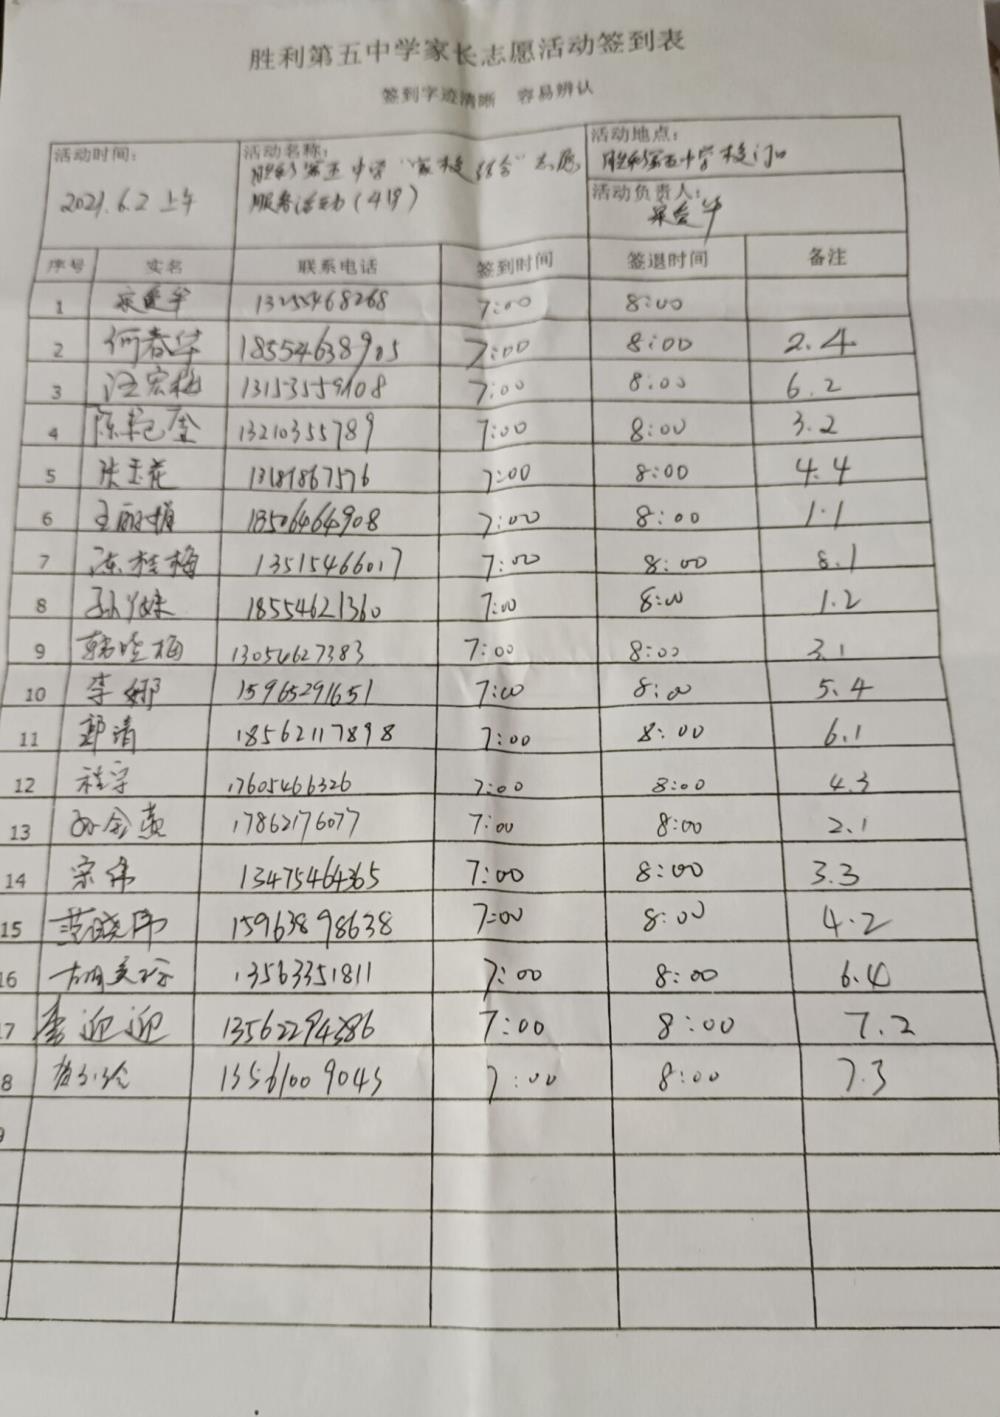 胜利第五中学家长志愿活动签到表
签到字迹清晰 容易辨认
活动时间： 活动名称： 活动地点：
胜利第五中学“家校结合”志愿 胜利第五中学校门口
2021.6.2 上午 服务活动(4节) 活动负责人：
序号 实名 联系电话 签到时间 签退时间 备注
1 13255468268 7:00 8:00
2 何春华 18554638905 7:00 8:00 2.4
3 汪宏梅 7:00 8:00 6.2
4 13210355789 7:00 8:00 3.2
5 张玉花 13181867576 7:00 8:00 4.4
6 王丽娟 18506464908 7:00 8:00 1.1
7 陈桂梅 13515466017 7:00 8:00 8.1
8 18554621360 7:00 8:00 1.2
9 韩晓梅 13054627383 7:00 8:00 3.1
10 李娜 15965291651 7:00 8:00 5.4
11 郭清 18562117898 7:00 8:00 6.1
12 程宇 17605466326 7:00 8:00 4.3
13 17862176077 7:00 8:00 2.1
14 宋伟 13475464365 7:00 8:00 3.3
15 范晓伟 15963898638 7:00 8:00 4.2
16 13563351811 7:00 8:00 6.4
7 李迎迎 13562294386 7:00 8:00 7.2
8 13561009043 7:00 8:00 7.3